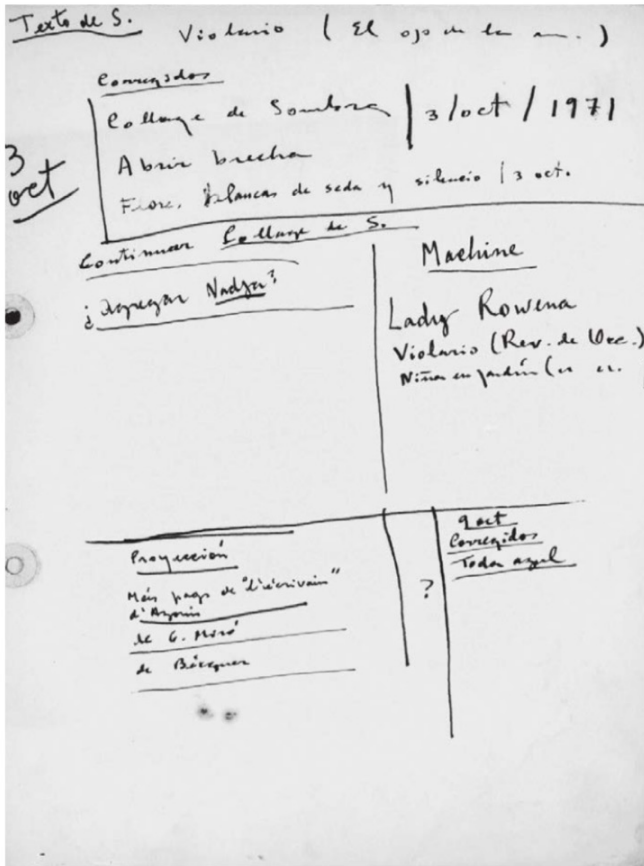 Texto de S. Violario (El ojo de la
Corregidos
3 oct
Collage de Sombra | 3/oct/1971
Abrir brecha
Flores blancas de seda y silencio | 3 oct.
Continuar Collage de S.
¿Agregar Nadja?
Machine
Lady Rowena
Violario (Rev. de Occ.)
Niña en jardín
Proyección
Más pags de "l'écrivain"
d'Azorín
de G. Miró
de Bécquer
?
9 oct
Corregidos
Todo azul